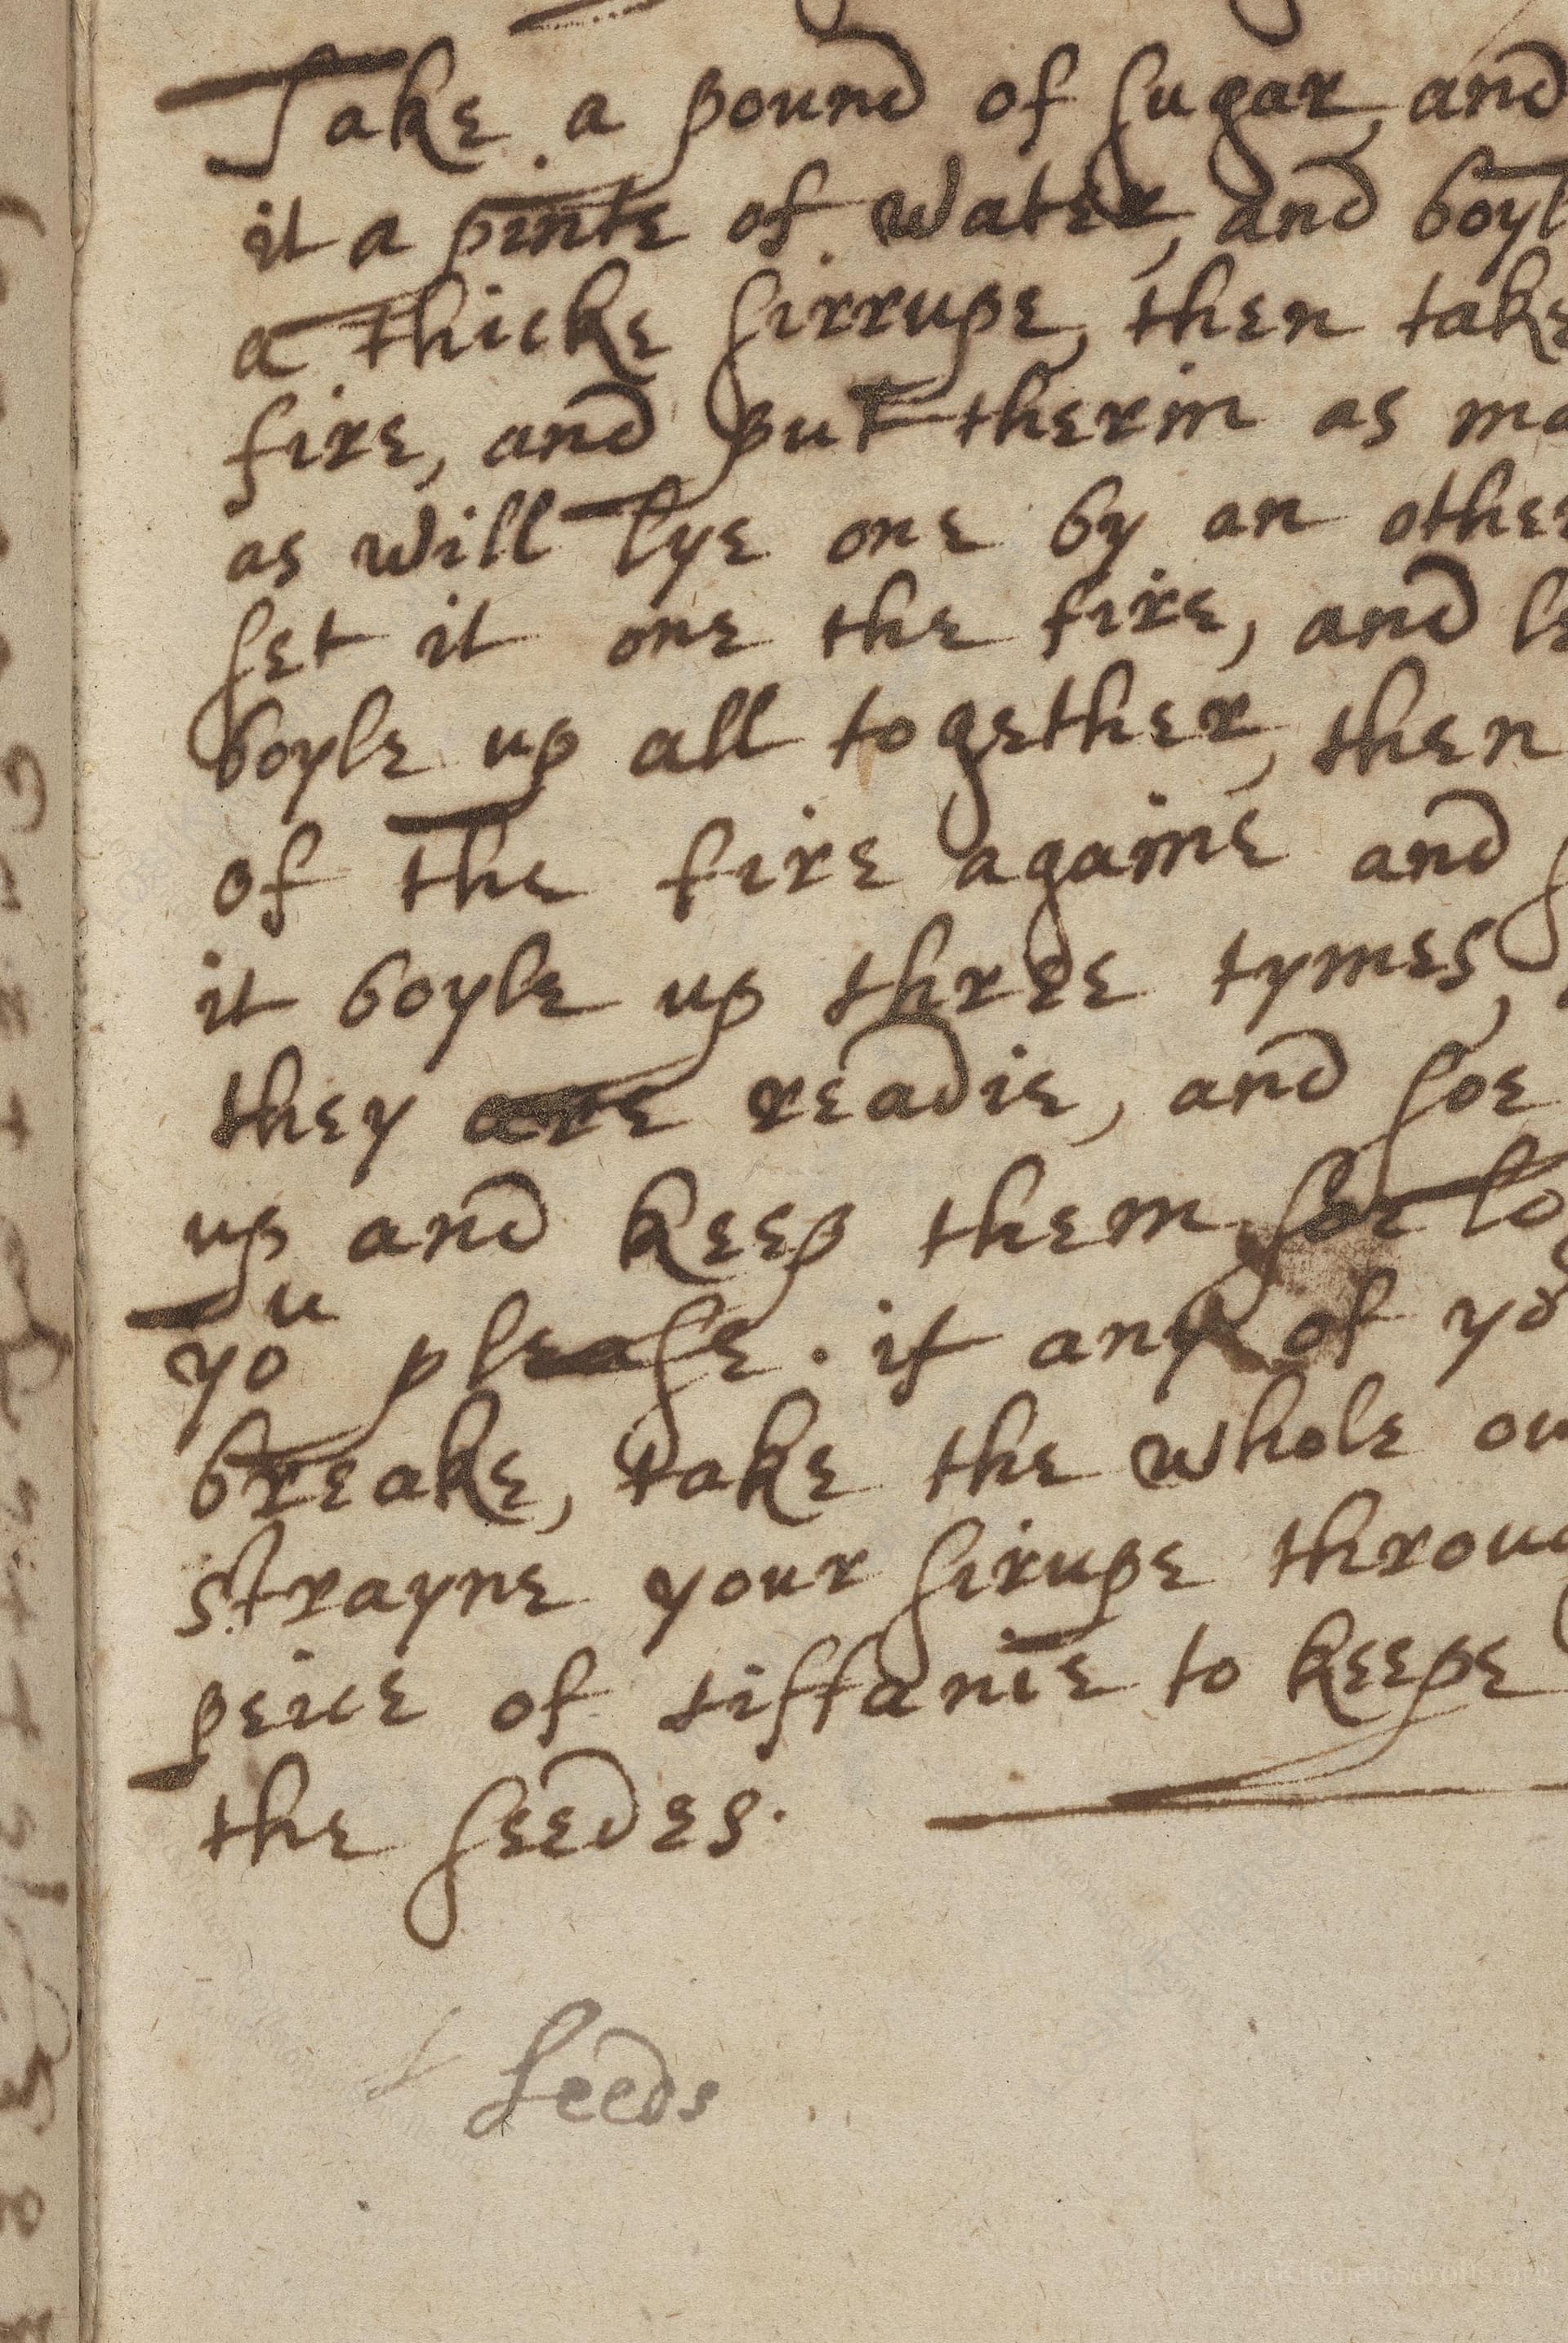 Take a pound of sugar, and
it a pinte of water, and boyl
a thicke sirrupe, then take
fire, and put therin as ma
as will lye one by an other
set it one the fire, and le
boyle up all together, then
of the fire againe and s
it boyle up three tymes,
they are readie, and soe
up and keep them soe lo
you please. if any of yo
breake, take the whole ou
strayne your sirupe throug
peice of tiffanie to keepe
the seedes.
seeds